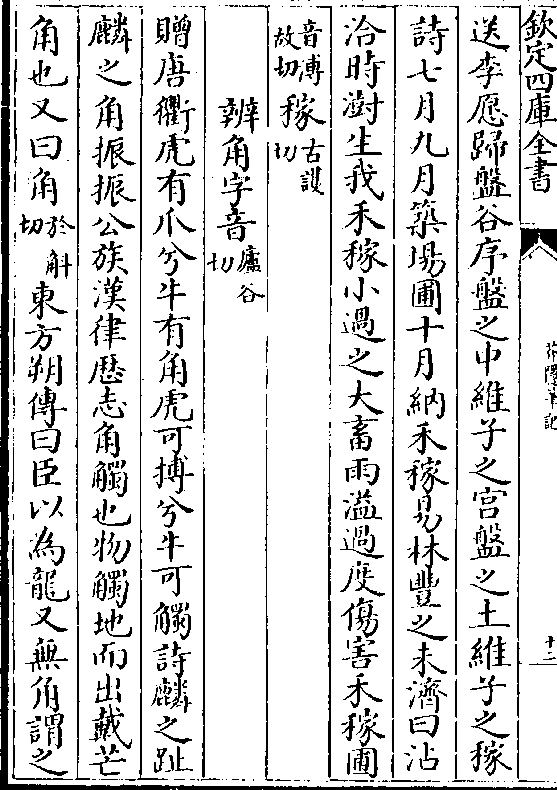 欽定四庫全書
十二
送李愿歸盤谷序盤之中維子之宫盤之土維子之稼
詩七月九月築場圃十月納禾稼易林豐之未濟曰沾
洽時澍生我禾稼小過之大畜雨溢過度傷害禾稼圃
音博故切稼古護切
辨角字音盧谷切
贈唐衢虎有爪兮牛有角虎可搏兮牛可觸詩麟之趾
麟之角振振公族漢律歴志角觸也物觸地而出戴芒
角也又曰角於斛切東方朔傳曰臣以為龍又無角謂之